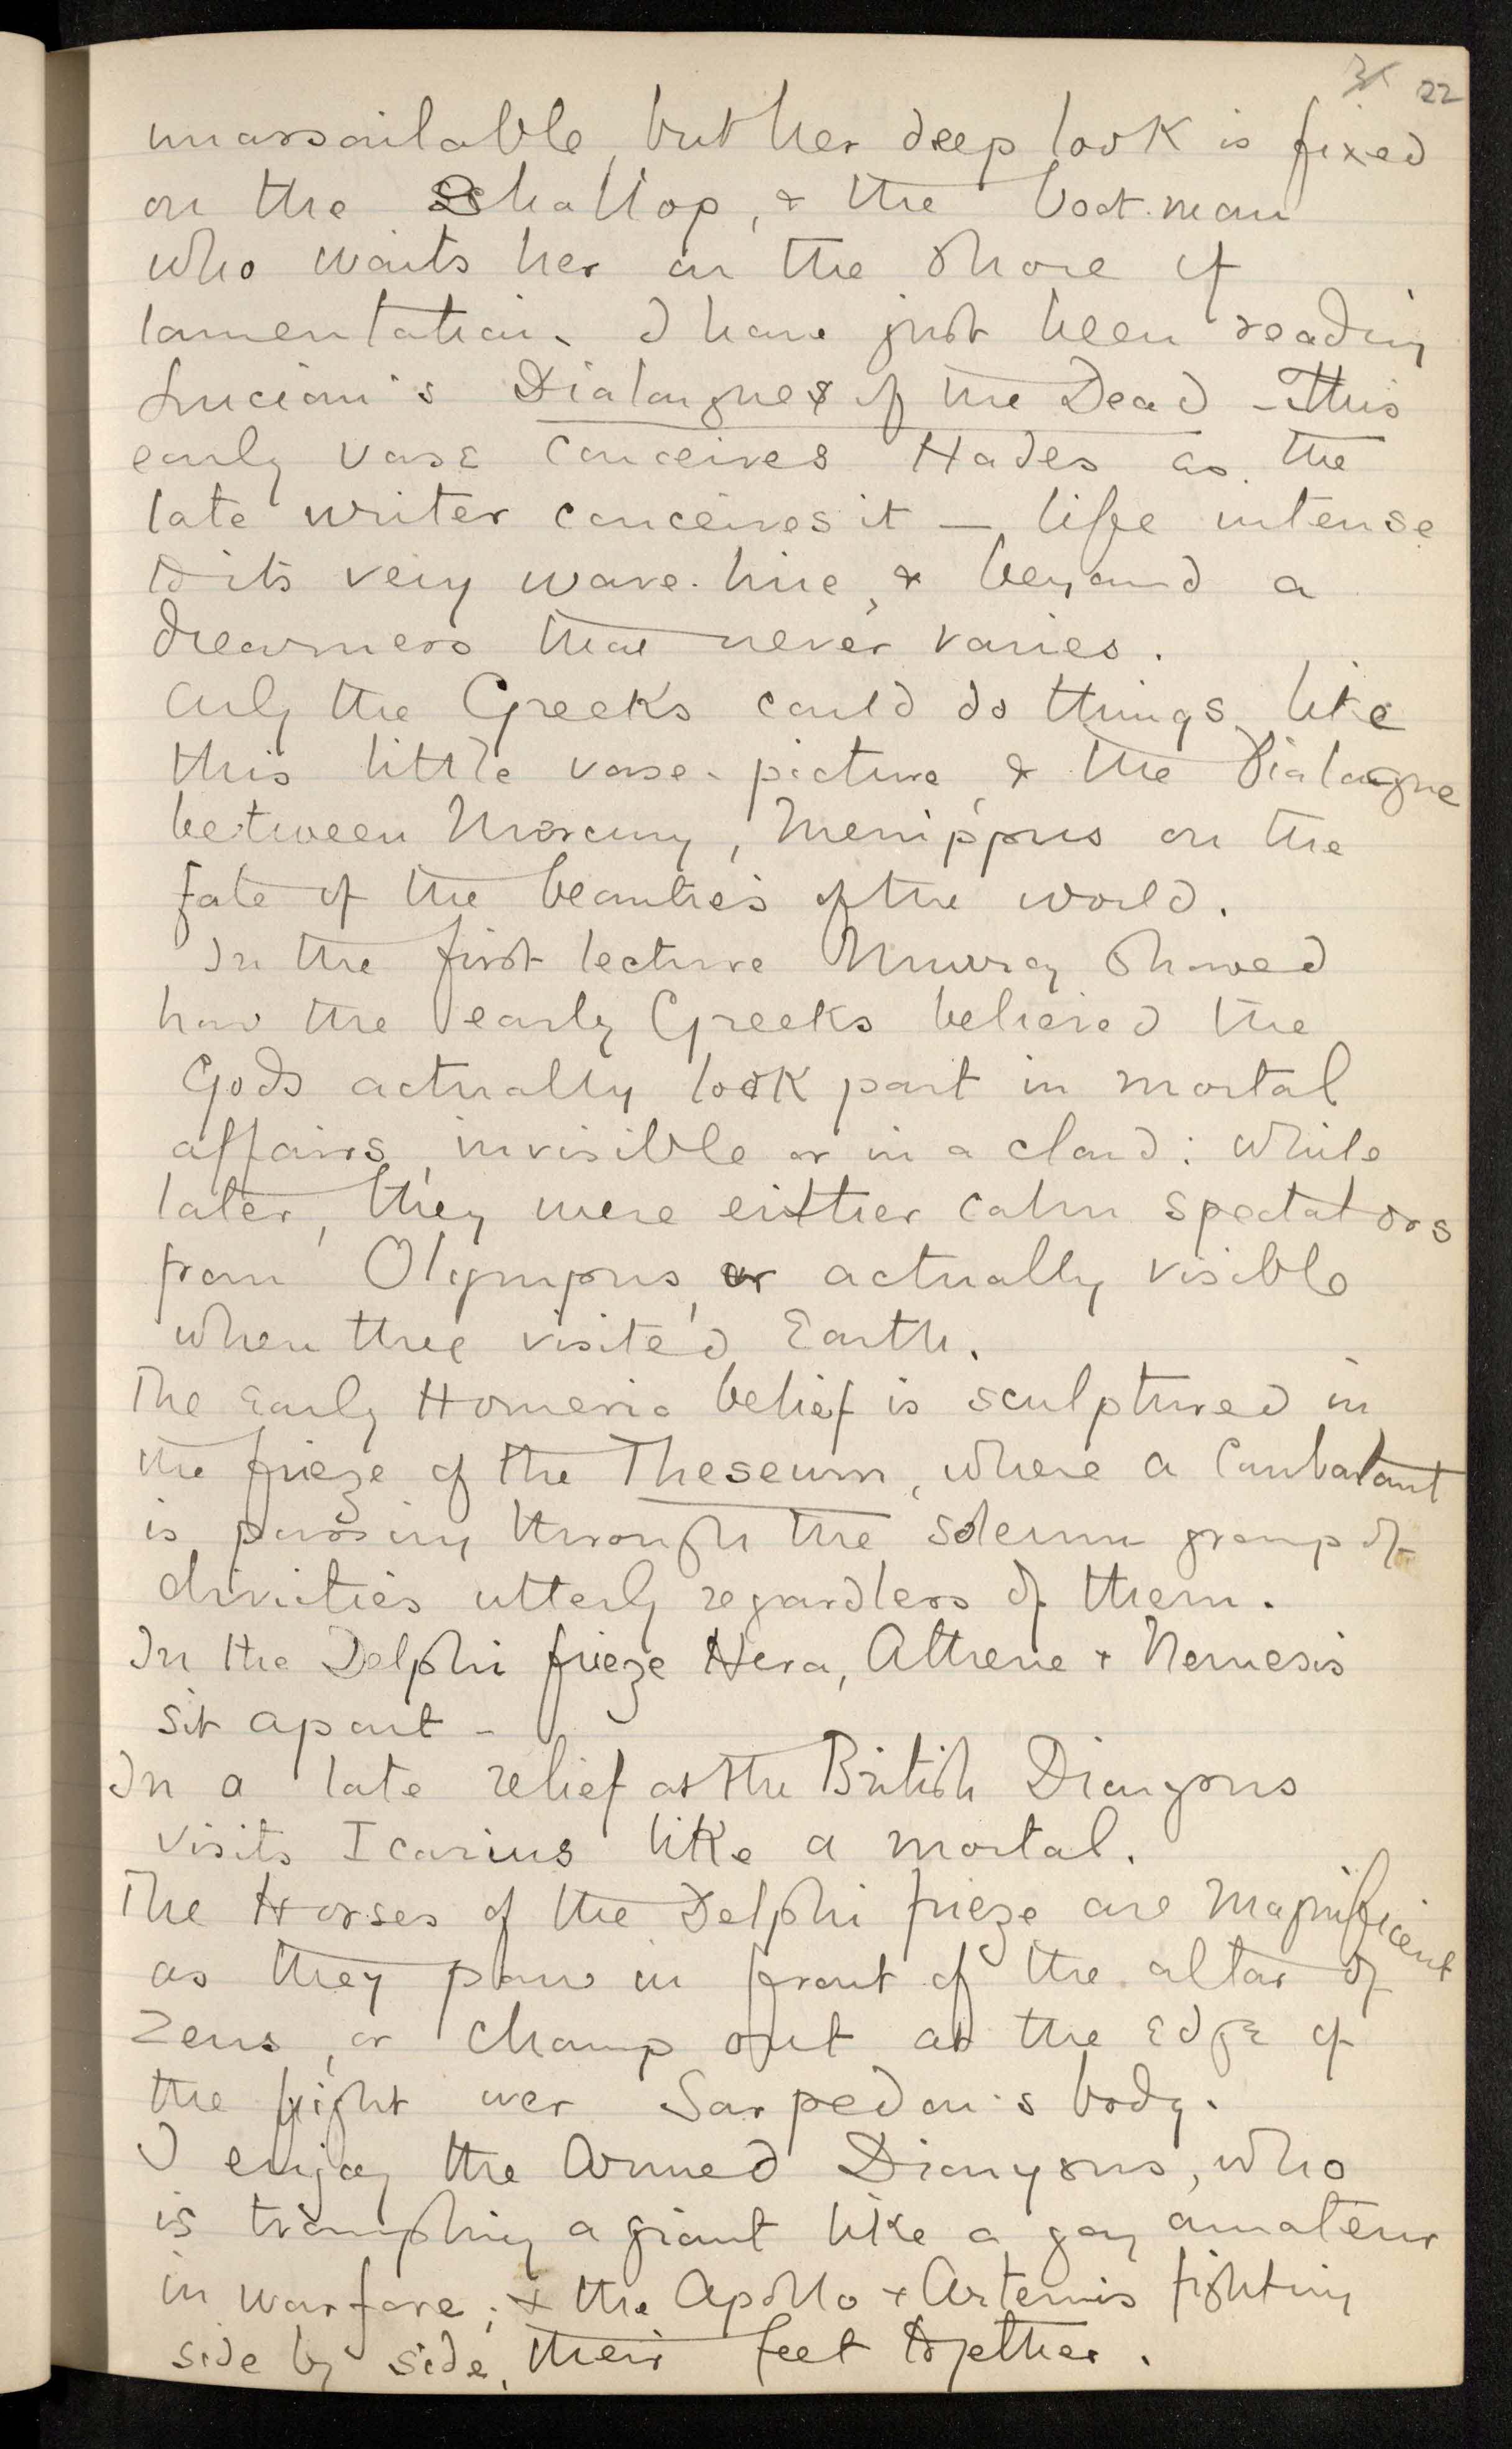 22
unassailable, but her deep look is fixed
on the Shallop, & the boat-man
who waits her on the shore of
lamentation. I have just been reading
Lucian's Dialogues of the Dead - This
early vase conceives Hades as the
late writer conceives it — life intense
to its very wave-line, & beyond a
dreariness that never varies.
Only the Greeks could do things like
this little vase-picture, & the Dialogue
between Mercury, Menippus on the
fate of the beauties of the world.
In the first lecture Murray showed
how the early Greeks believed the
Gods actually took part in mortal
affairs, invisible or in a cloud: while
later, they were either calm spectators
from Olympus, or actually visible
when they visited Earth.
The Early Homeric belief is sculptured in
the frieze of the Theseum, where a Combatant
is passing through the solemn group of
divinities utterly regardless of them.
In the Delphi frieze Hera, Athene & Nemesis
sit apart -
In a late relief at the British Dionysus
visits Icarius like a mortal.
The Horses of the Delphi frieze are magnificent
as they paw in front of the altar of
Zeus, or champ out at the Edge of
the fight over Sarpedon's body.
I enjoy the Armed Dionysus, who
is trampling a giant like a gay amateur
in warfare; & the Apollo & Artemis fighting
side by side, their feet together.